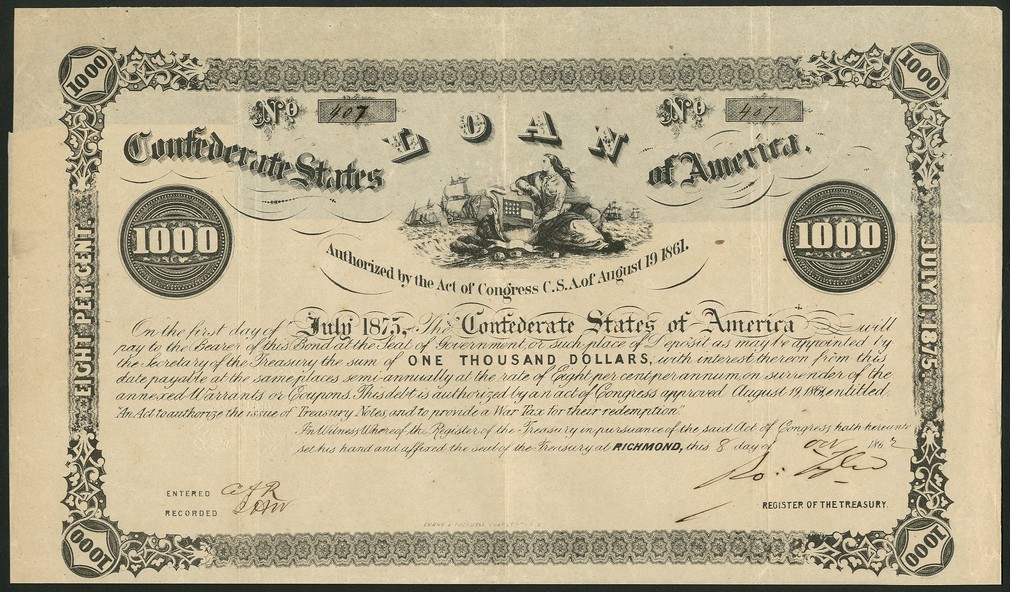 1000
1000
No 407
No 407
LOAN
Confederate States of America.
1000
1000
Authorized by the Act of Congress C.S.A. of August 19 1861.
EIGHT PER CENT.
JULY 1, 1875.
On the first day of July 1875, The Confederate States of America will
pay to the Bearer of this Bond at the Seat of Government, or such place of Deposit as may be appointed by
the Secretary of the Treasury the sum of ONE THOUSAND DOLLARS, with interest thereon from this
date payable at the same places semi-annually at the rate of Eight per cent per annum on surrender of the
annexed Warrants or Coupons. This debt is authorized by an act of Congress approved August 19, 1861, entitled
"An Act to authorize the issue of Treasury Notes, and to provide a War Tax for their redemption."
In Witness Whereof the Register of the Treasury in pursuance of the said Act of Congress hath hereunto
set his hand and affixed the seal of the Treasury at RICHMOND, this 8 day of Oct 1862
ENTERED
RECORDED
REGISTER OF THE TREASURY.
1000
1000